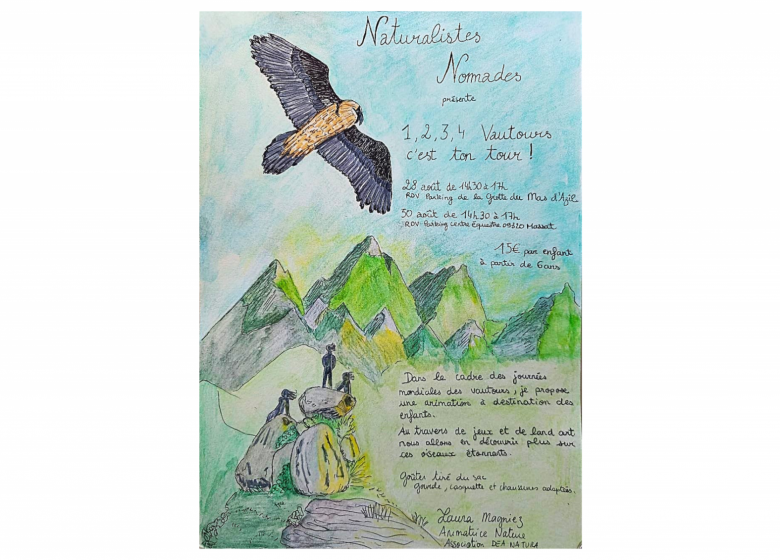 Naturalistes
Nomades
présente
1, 2, 3, 4 Vautours
c'est ton tour !
28 août de 14h30 à 17h
RDV: Parking de la Grotte du Mas d'Azil
50 août de 14h30 à 17h
RDV: Parking centre Equestre 09320 Massat
15€ par enfant
à partir de 6ans
Dans le cadre des journées
mondiales des vautours, je propose
une animation à destination des
enfants.
Au travers de jeux et de land art
nous allons en découvrir plus sur
ces oiseaux étonnants.
Goûter tiré du sac
Gourde, casquette et chaussures adaptées.
Laura Magniez
Animatrice Nature
Association DEA NATURA